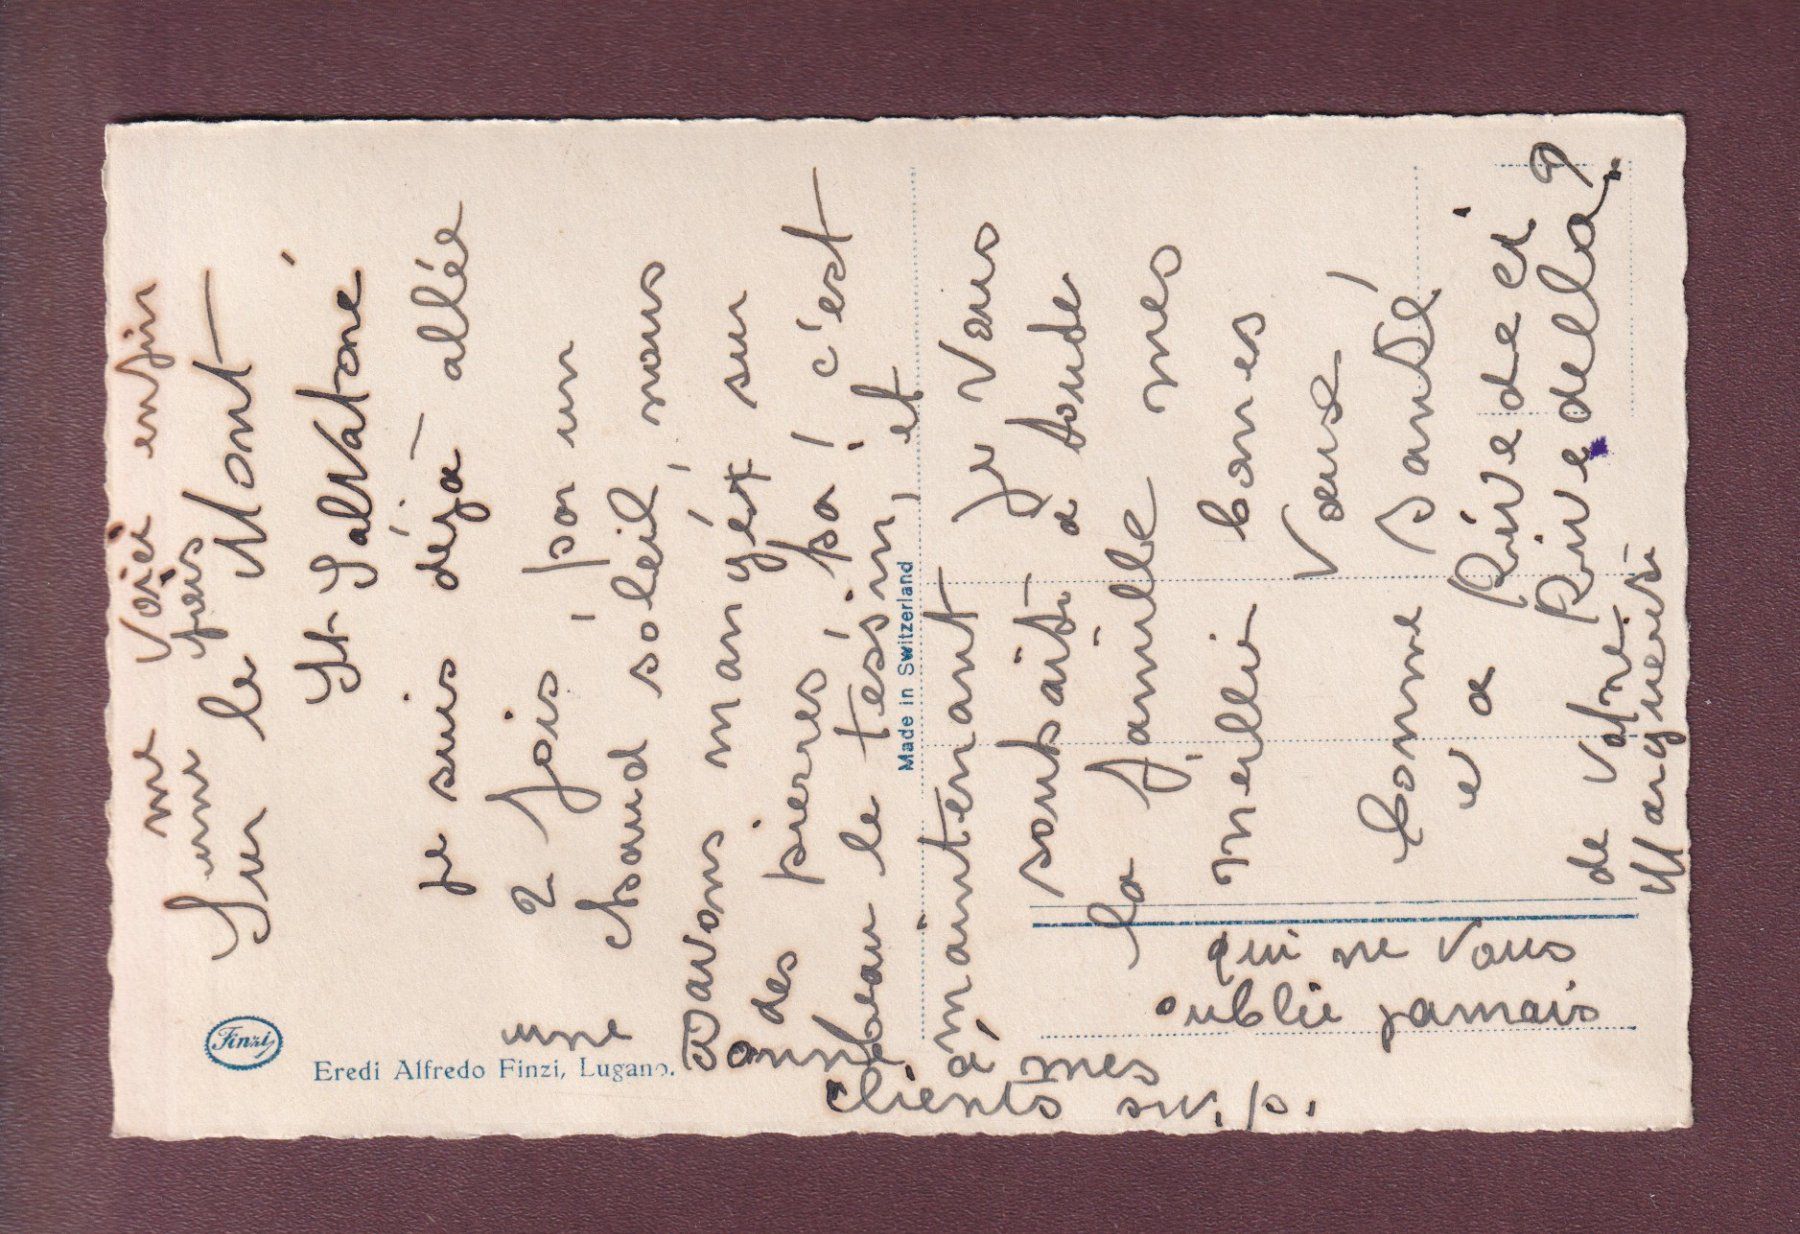 me voici enfin
une fois
Sur le Mont
St Salvatoré
je suis déja allée
2 fois par un
chaud soleil nous
avons mangéx sur
des pierres c'est
beau le tesin, et
maintenant je vous
souhaite a toute
la famille mes
meilli bones
Vœuse
bonne santé
e a Rivedeci
Rivedella?
de votre
Marguerite
qui ne vous
oublie jamais
une
à mes
clients s.v.p.
Finzi
Eredi Alfredo Finzi, Lugano.
Made in Switzerland